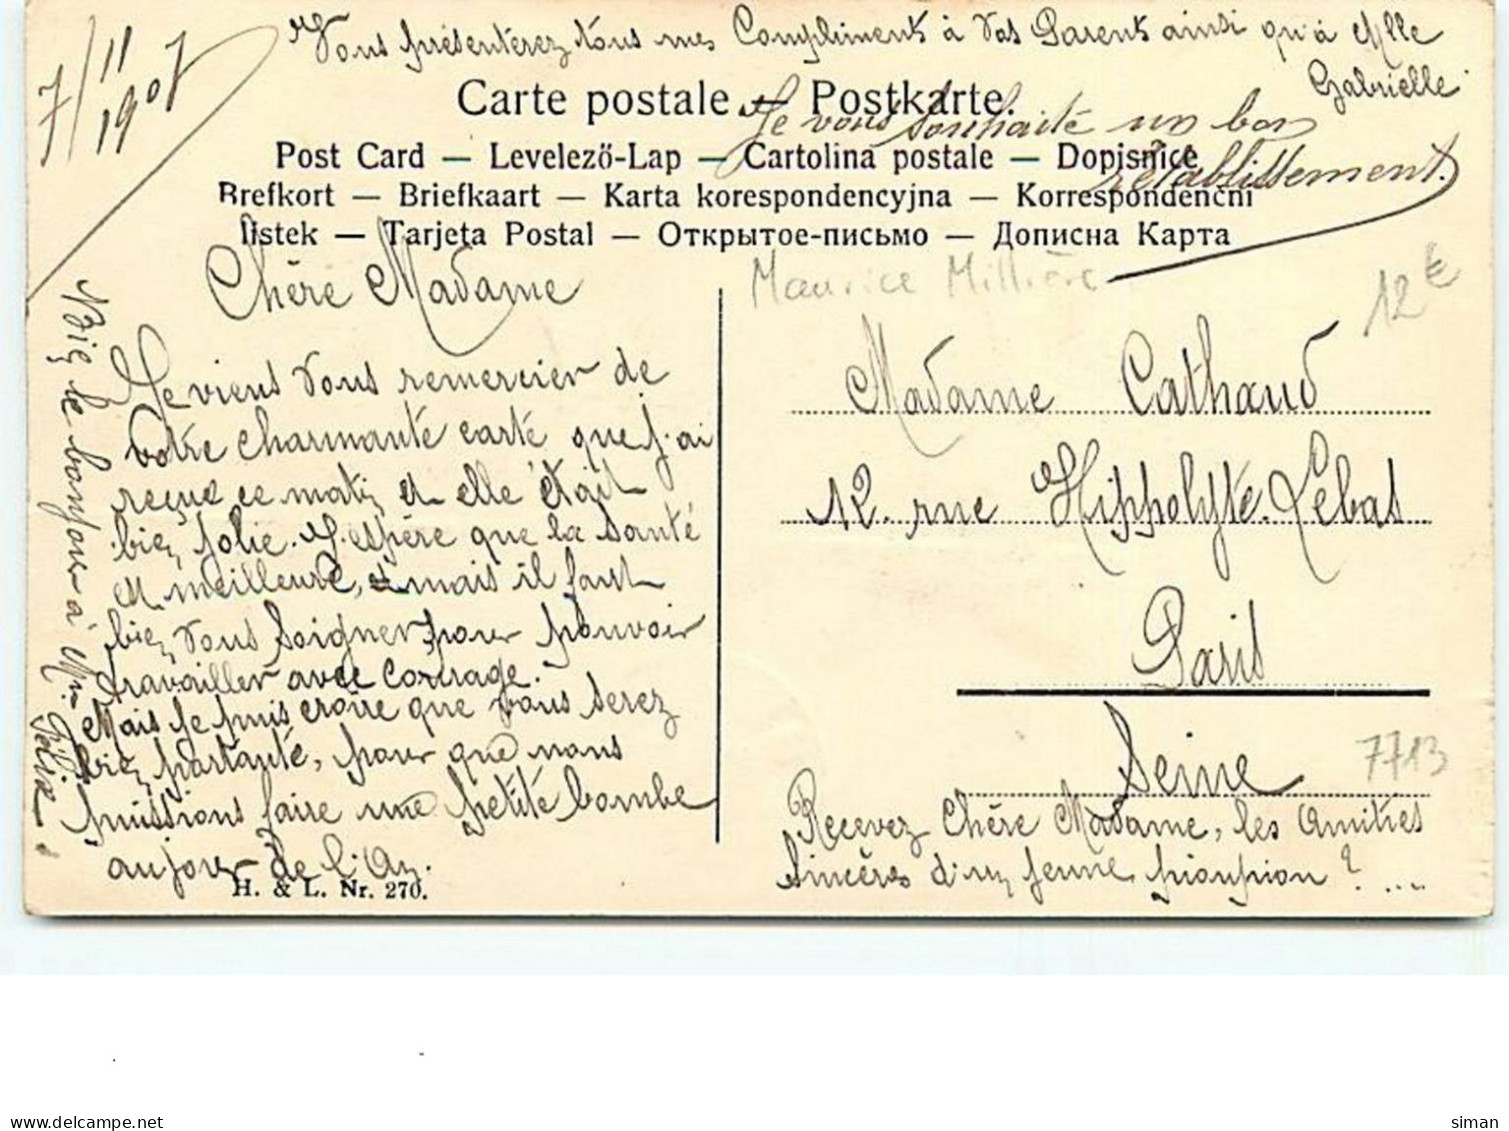 7/11 1907
Vous présenterez tous mes Compliments à Vos Parents ainsi qu'à Mlle
Gabrielle
Carte postale — Postkarte.
Je vous souhaite un bon
rétablissement.
Post Card — Levelező-Lap — Cartolina postale — Dopisnice
Brefkort — Briefkaart — Karta korespondencyjna — Korrespondenčni
listek — Tarjeta Postal — Открытое-письмо — Дописна Карта
Chère Madame
Je viens Vous remercier de
votre charmante carte que j'ai
reçue ce matin et elle était
bien jolie. J'espère que la santé
et meilleure, mais il faut
bien Vous Soigner pour pouvoir
travailler avec courage.
Mais je puis croire que vous serez
bien portante, pour que nous
puissions faire une petite bombe
au jour de l'An.
Bien le bonjour à Mr Félix.
H. & L. Nr. 270.
Maurice Millière
12 €
Madame Cathaud
12. rue Hippolyte. Lebas
Paris
Seine
7713
Recevez Chère Madame, les Amitiés
Sincères d'un jeune pioupiou ? ...
siman
delcampe.net